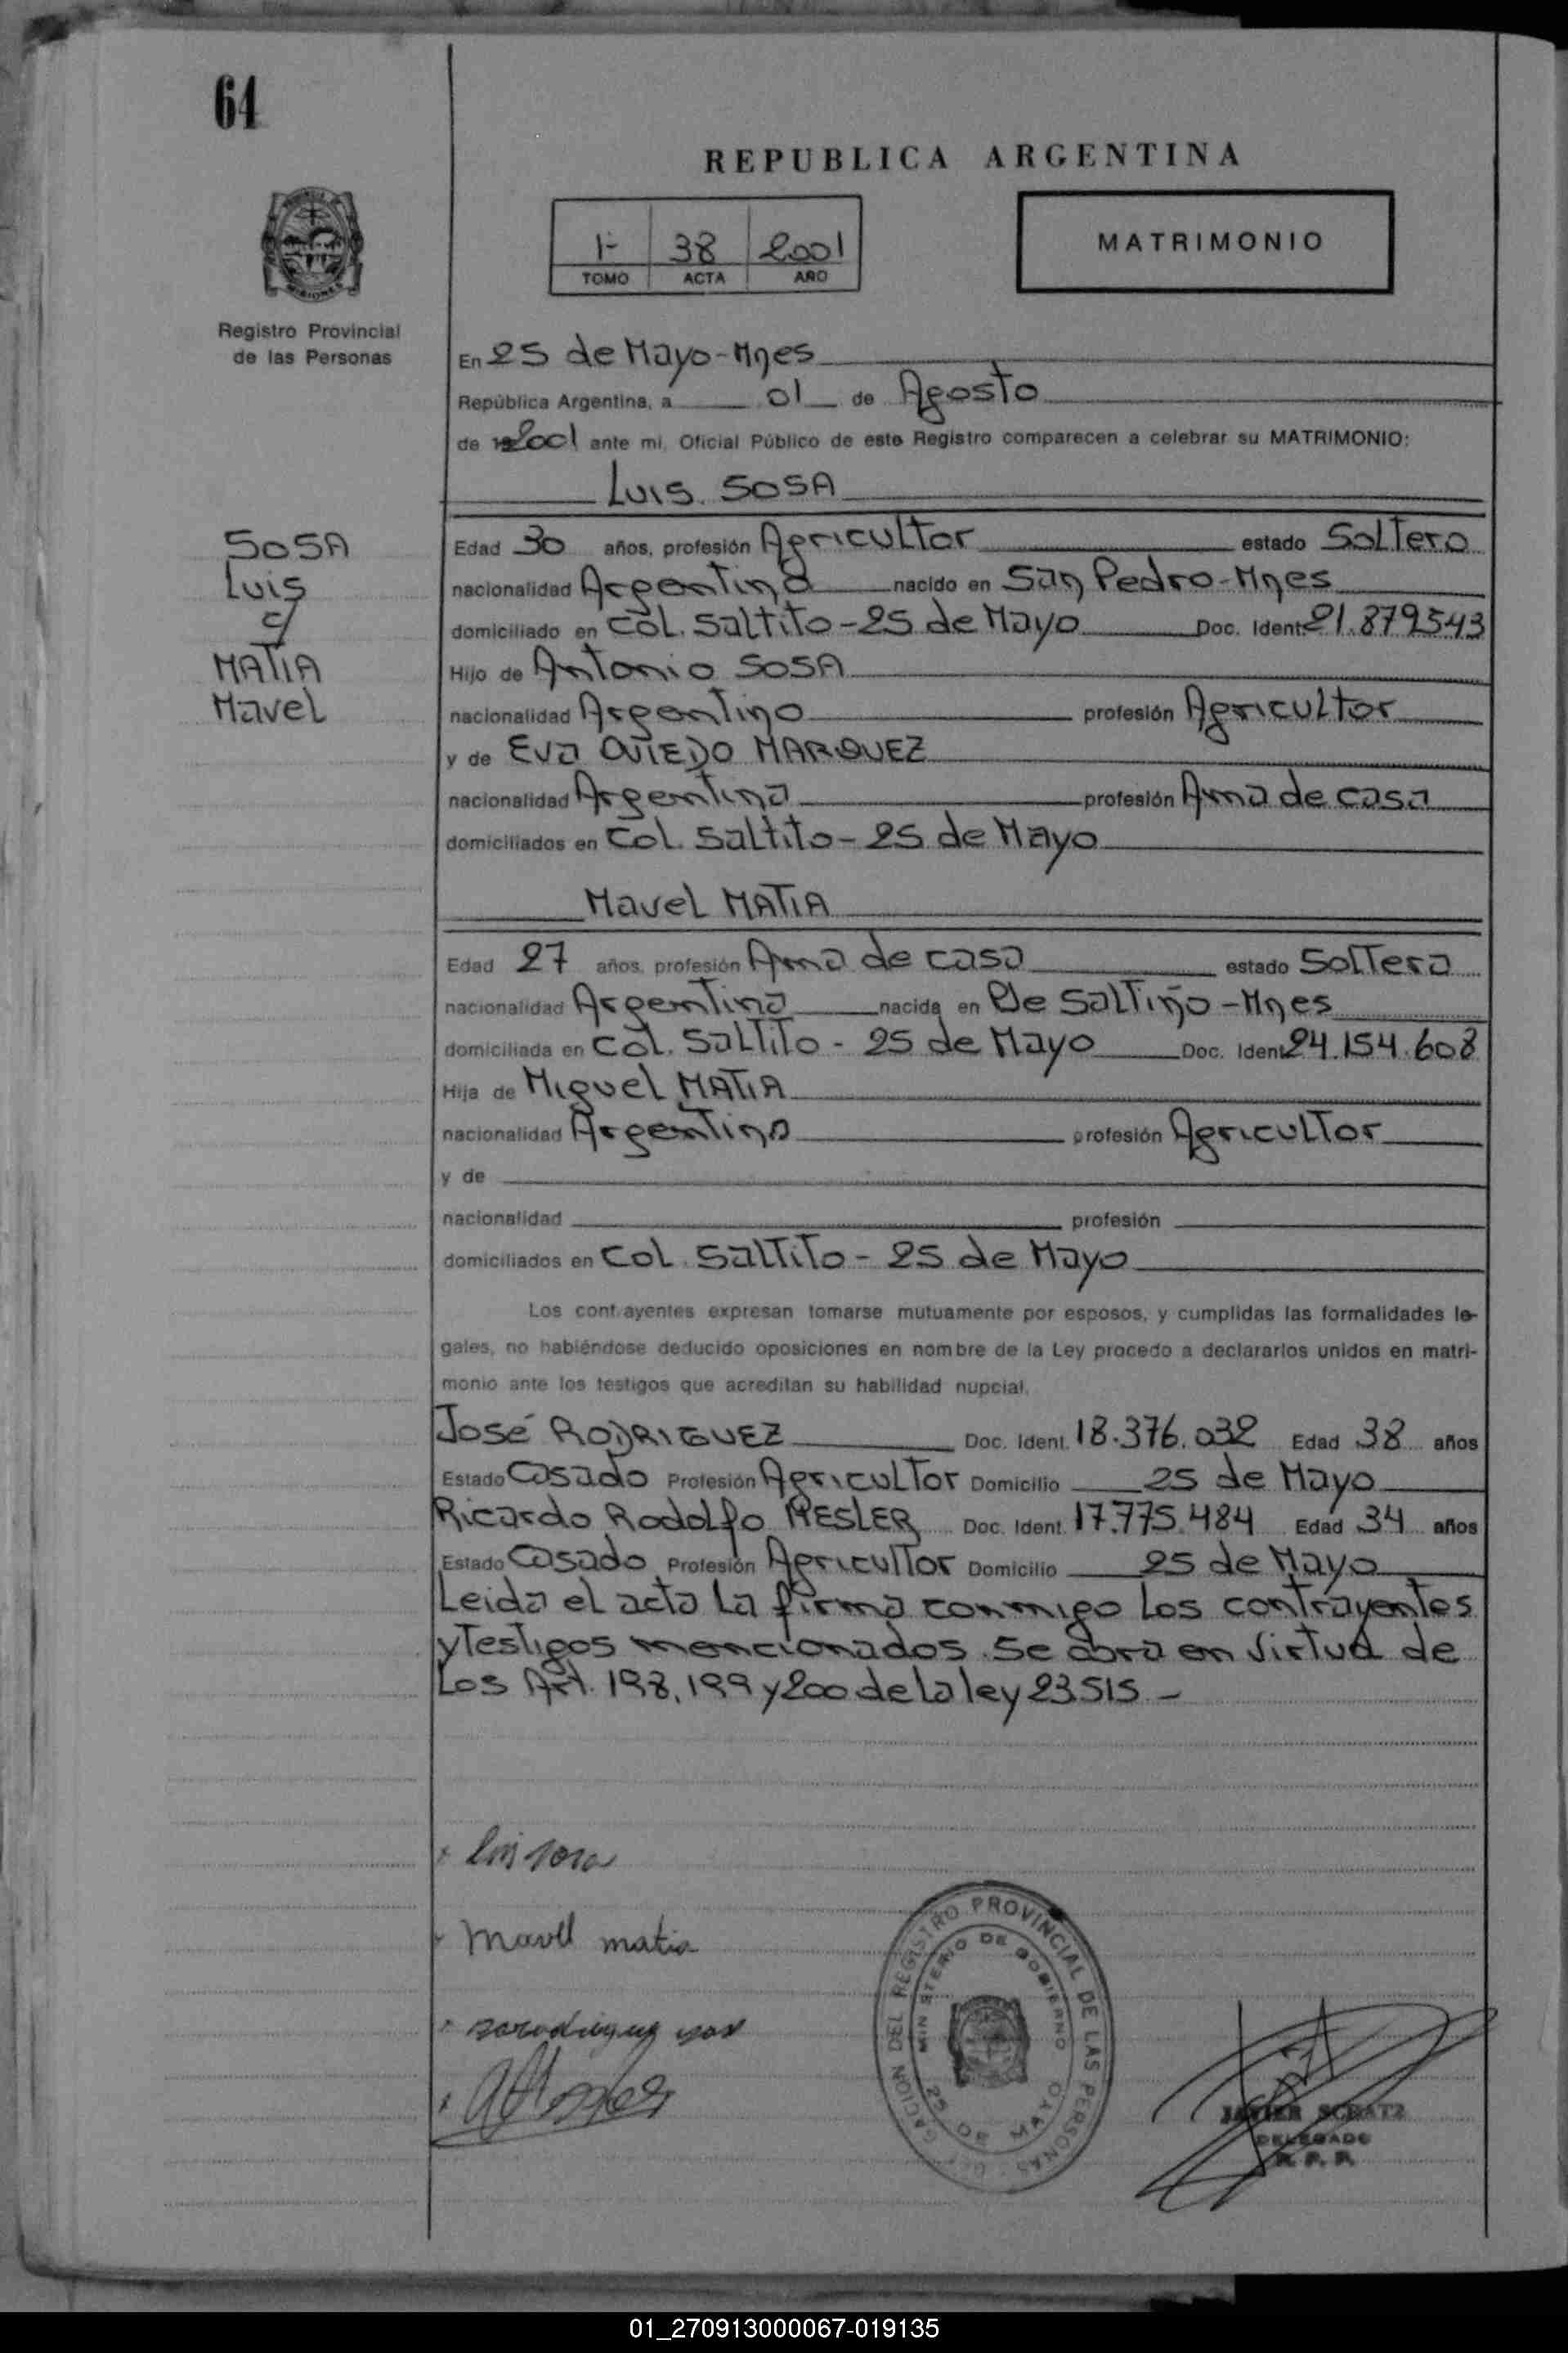 64
REPUBLICA ARGENTINA
1- 38 2001
TOMO ACTA AÑO
MATRIMONIO
MISIONES
Registro Provincial
de las Personas
En 25 de Mayo-Mnes
República Argentina, a 01 de Agosto
de 2001 ante mi, Oficial Público de este Registro comparecen a celebrar su MATRIMONIO:
Luis SOSA
SOSA
Luis
c/
MATIA
Mavel
Edad 30 años, profesión Agricultor estado Soltero
nacionalidad Argentina nacido en San Pedro-Mnes
domiciliado en Col. Saltito-25 de Mayo Doc. Ident. 21.879.543
Hijo de Antonio SOSA
nacionalidad Argentino profesión Agricultor
y de Eva OVIEDO MARQUEZ
nacionalidad Argentina profesión Ama de casa
domiciliados en Col. Saltito-25 de Mayo
Mavel MATIA
Edad 27 años, profesión Ama de casa estado Soltera
nacionalidad Argentina nacida en Saltiño-Mnes
domiciliada en Col. Saltito - 25 de Mayo Doc. Ident. 24.154.608
Hija de Miguel MATIA
nacionalidad Argentino profesión Agricultor
y de
nacionalidad profesión
domiciliados en Col. Saltito - 25 de Mayo
Los contrayentes expresan tomarse mutuamente por esposos, y cumplidas las formalidades le-
gales, no habiéndose deducido oposiciones en nombre de la Ley procedo a declararlos unidos en matri-
monio ante los testigos que acreditan su habilidad nupcial.
José RODRIGUEZ Doc. Ident. 18.376.032 Edad 38 años
Estado Casado Profesión Agricultor Domicilio 25 de Mayo
Ricardo Rodolfo HESLER Doc. Ident. 17.775.484 Edad 34 años
Estado Casado Profesión Agricultor Domicilio 25 de Mayo
Leida el acta la firma conmigo los contrayentes
y Testigos mencionados. Se obra en virtud de
los Art. 198, 199 y 200 de la ley 23.515 -
Luis sosa
Mavel matia
DELEGACION DEL REGISTRO PROVINCIAL DE LAS PERSONAS
MINISTERIO DE GOBIERNO
25 DE MAYO
JAVIER SCHATZ
DELEGADO
R. P. P.
01_270913000067-019135